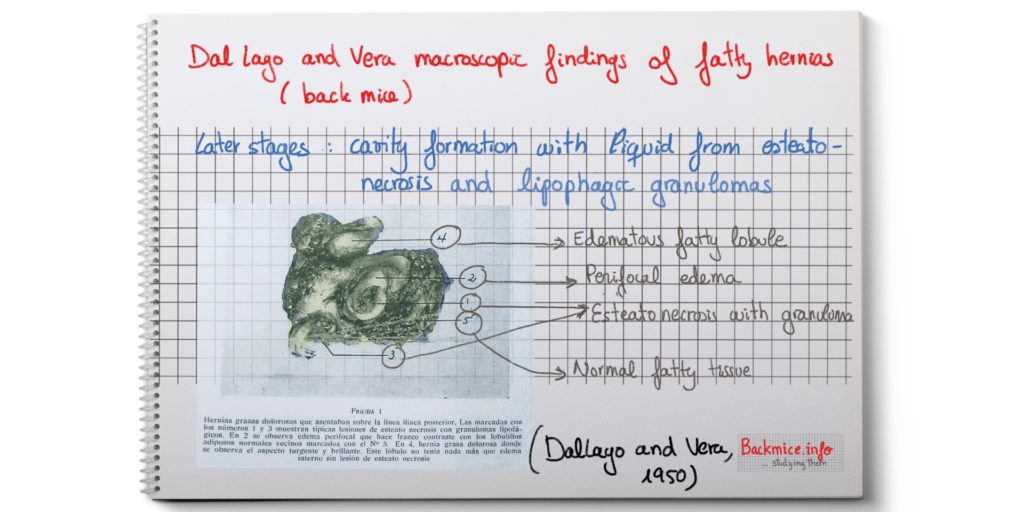 Dal Lago and Vera macroscopic findings of fatty hernias
(back mice)
Later stages : cavity formation with liquid from esteato-
necrosis and lipophagic granulomas
4
Edematous fatty lobule
2
Perifocal edema
1
Esteatonecrosis with granuloma
5
3
Normal fatty tissue
FIGURA 1
Hernias grasas dolorosas que asentaban sobre la línea iliaca posterior. Las marcadas con
los números 1 y 3 muestran típicas lesiones de esteato necrosis con granulomas lipofá-
gicos. En 2 se observa edema perifocal que hace franco contraste con los lobulillos
adiposos normales vecinos marcados con el Nº 5. En 4, hernia grasa dolorosa donde
se observa el aspecto turgente y brillante. Este lóbulo no tenía nada más que edema
interno sin lesión de esteato necrosis
(Dallago and Vera,
1950)
Backmice.info
... studying them